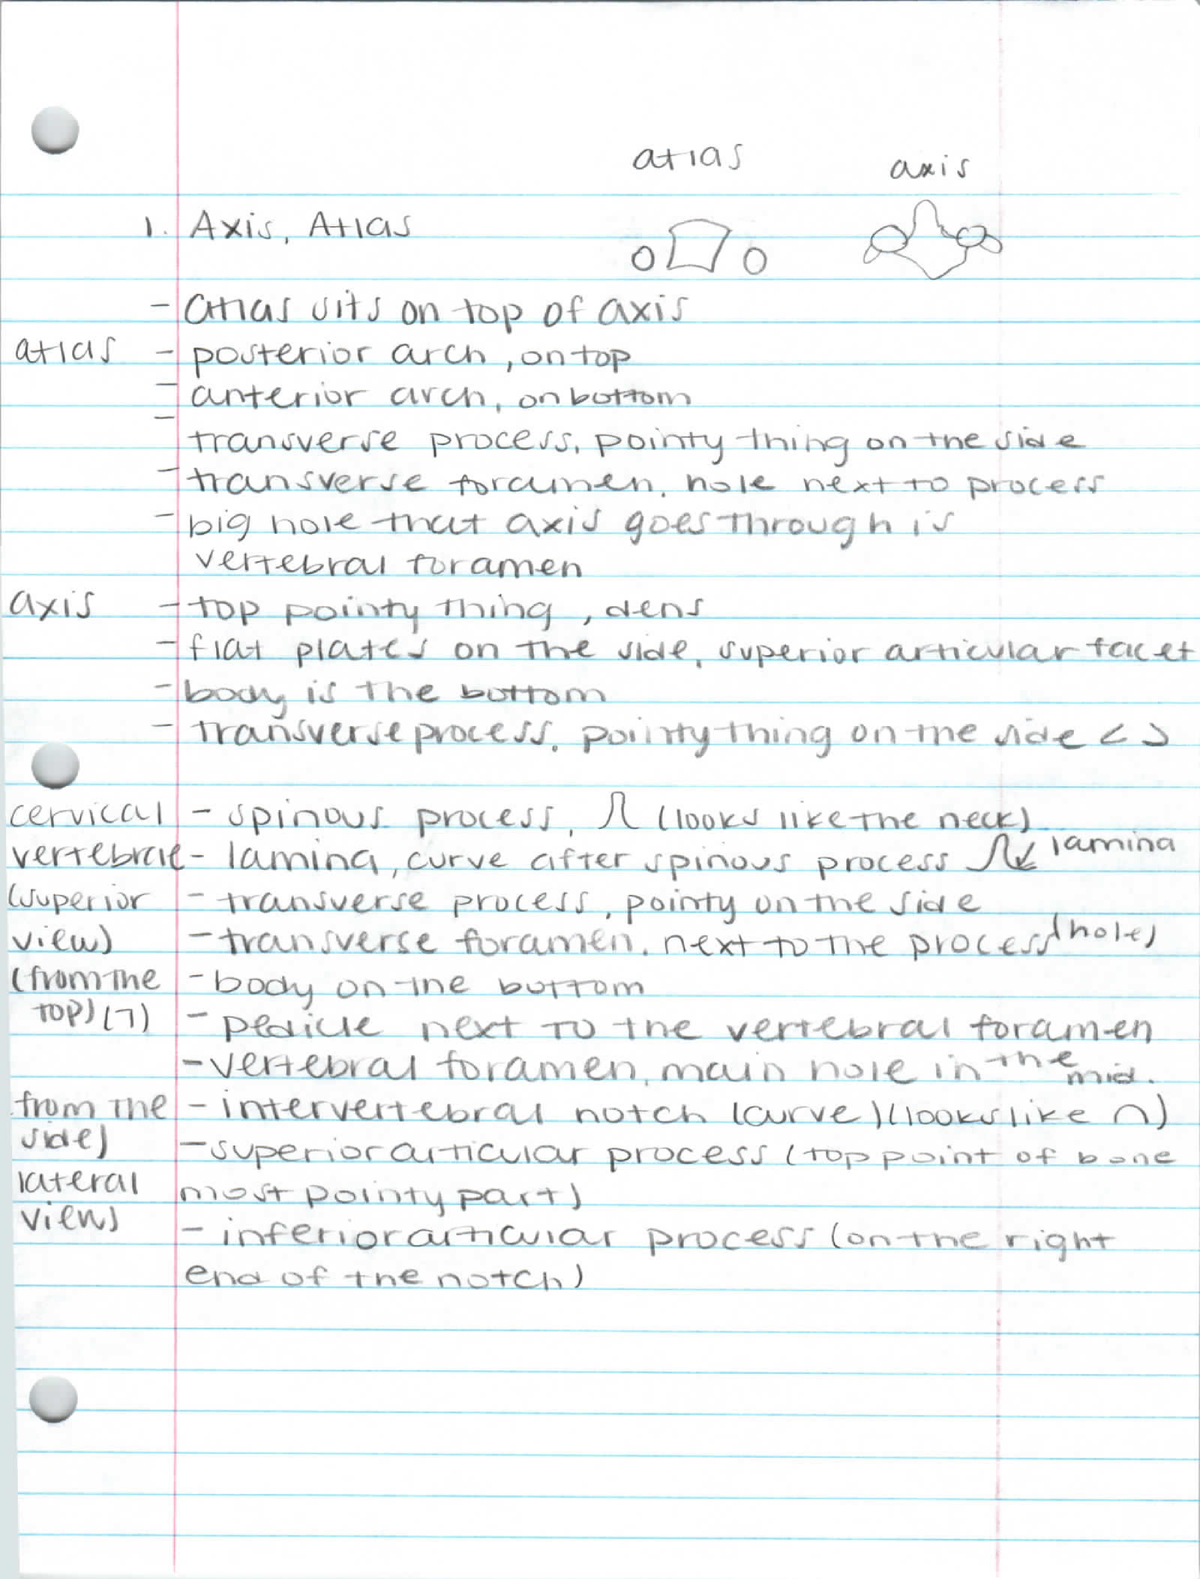 atlas axis
1. Axis, Atlas
- atlas sits on top of axis
atlas - posterior arch, on top
- anterior arch, on bottom
- transverse process, pointy thing on the side
- transverse foramen, hole next to process
- big hole that axis goes through is
vertebral foramen
axis - top pointy thing, dens
- flat plates on the side, superior articular facet
- body is the bottom
- transverse process, pointy thing on the side < >
cervical - spinous process, (looks like the neck)
vertebrae - lamina, curve after spinous process lamina
(superior - transverse process, pointy on the side
view) - transverse foramen, next to the process (hole)
(from the - body on the bottom
top) (7) - pedicle next to the vertebral foramen
- vertebral foramen, main hole in the mid.
from the - intervertebral notch (curve) (looks like ∩)
side) - superior articular process (top point of bone
lateral most pointy part)
view) - inferior articular process (on the right
end of the notch)